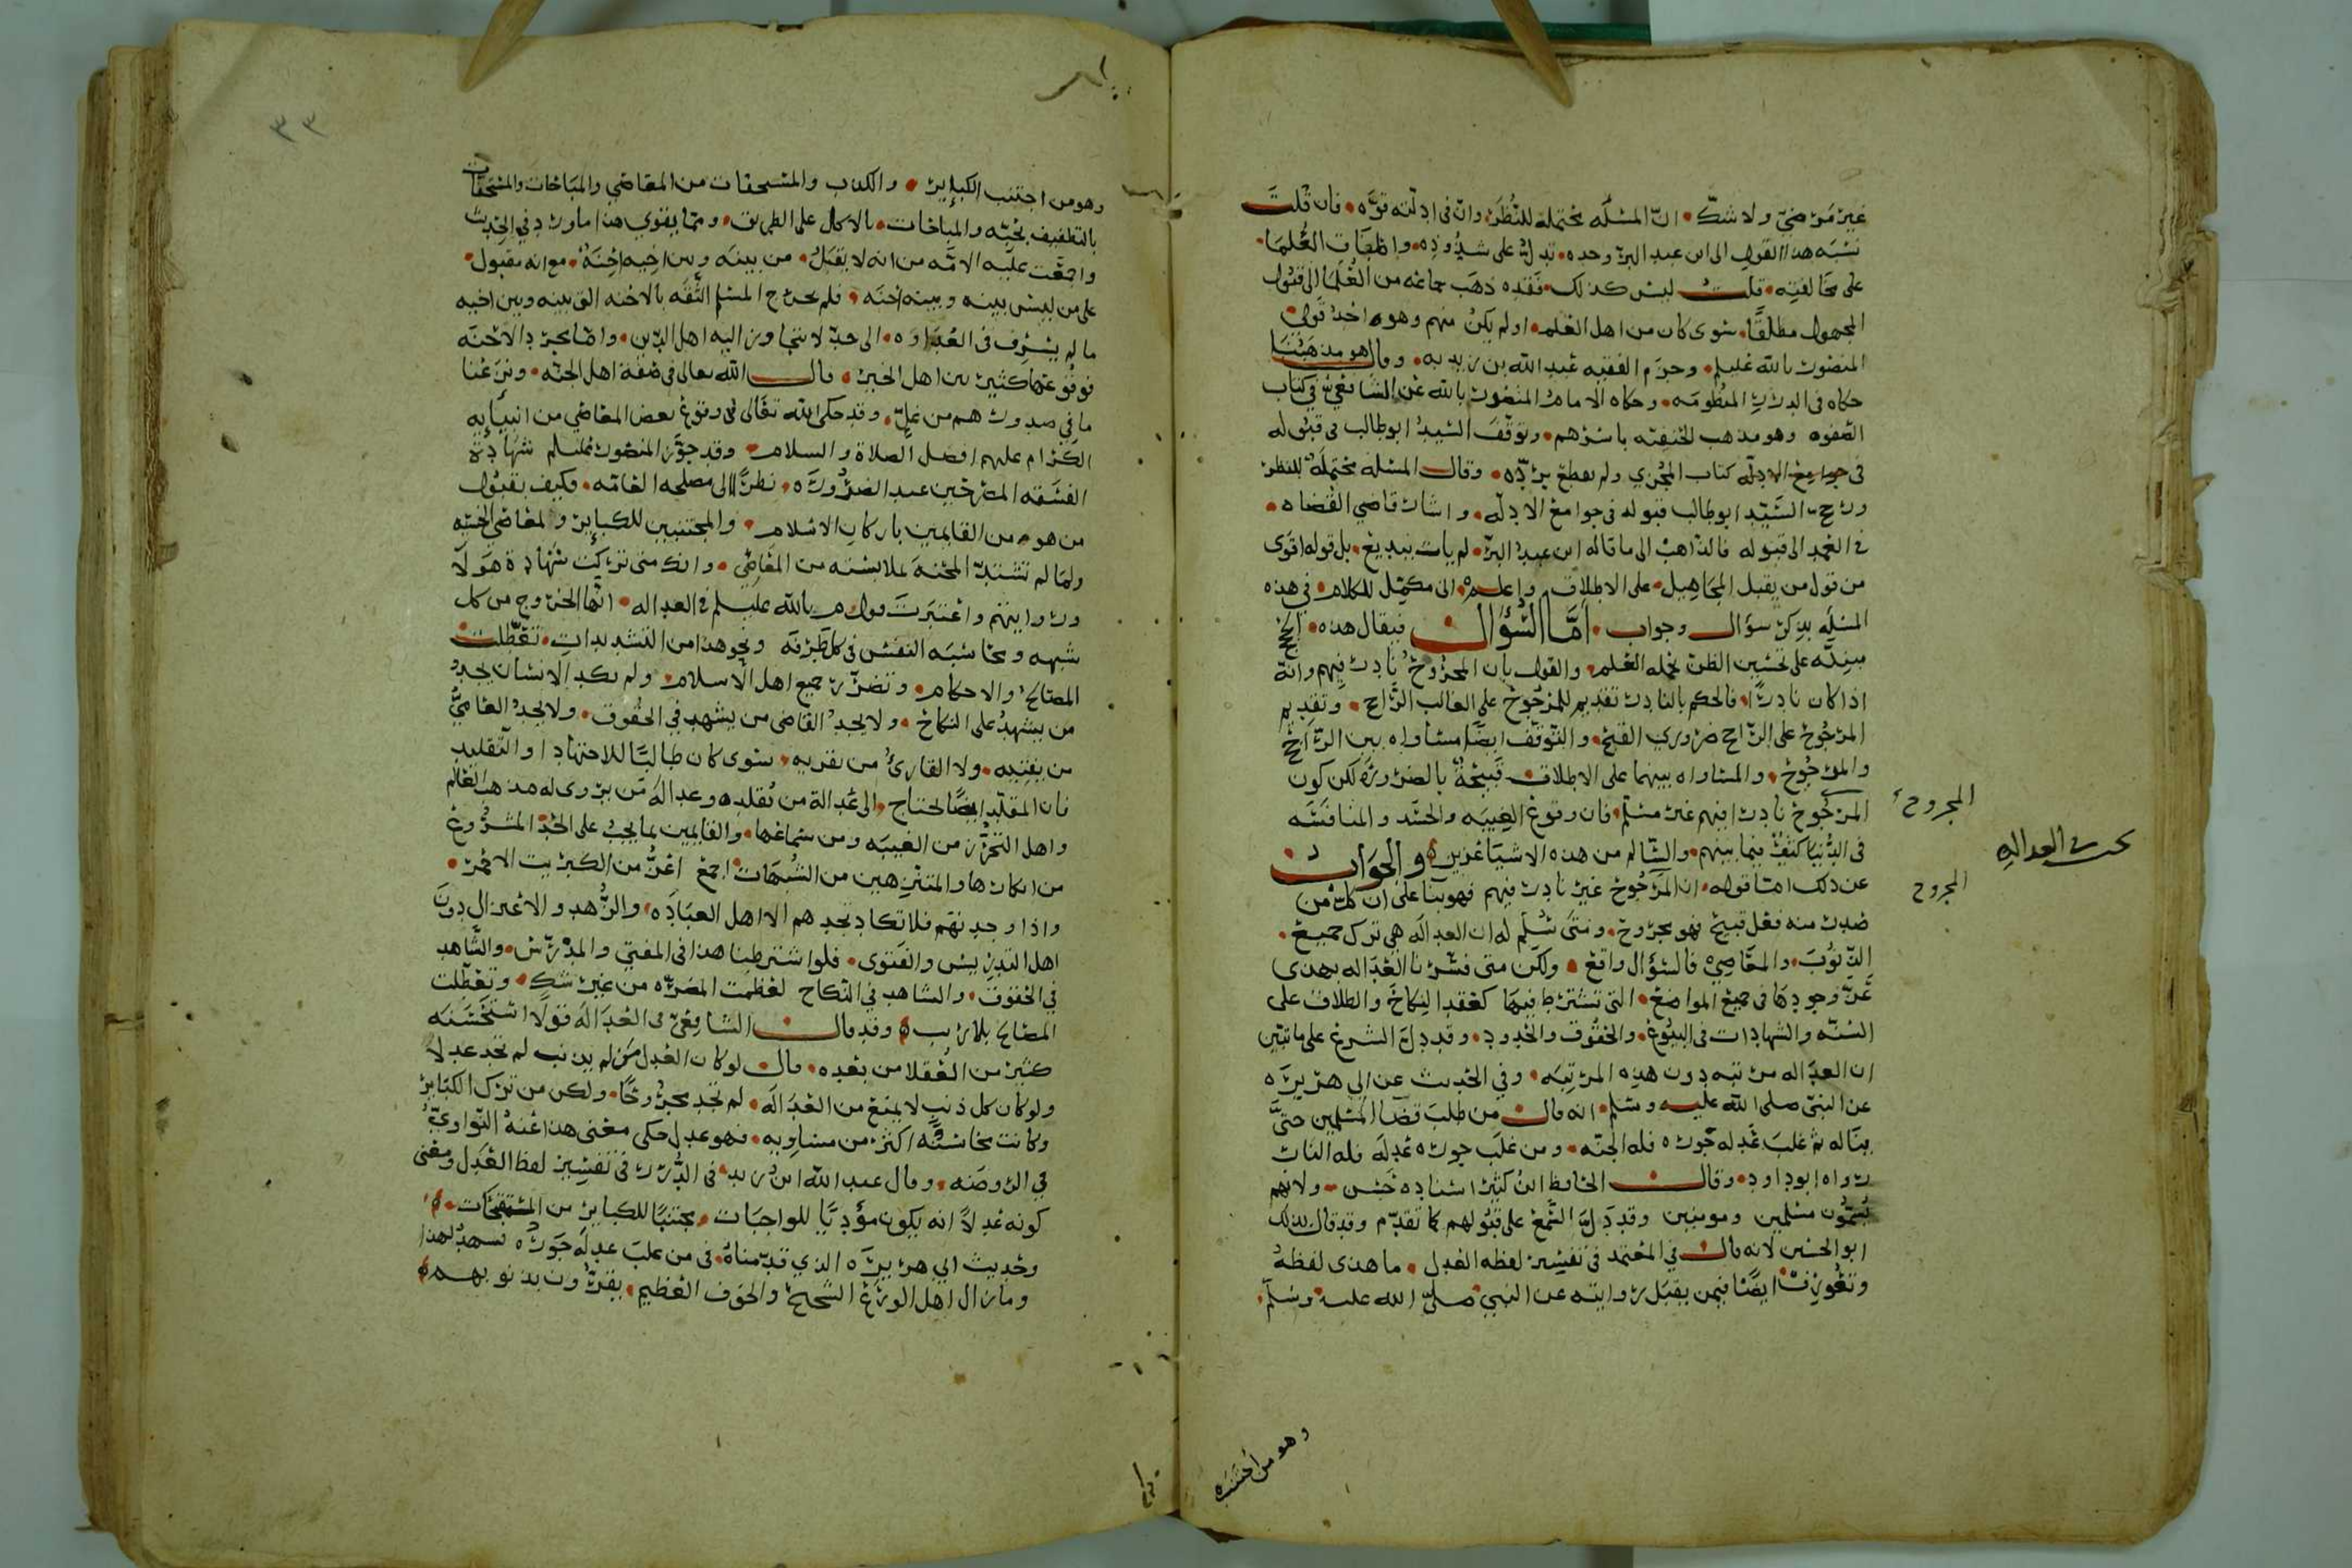 غير مرضي ولا شك ان المسئلة محتملة للنظر وان في ادلته قوة فان قلت
نسبه هذا القول الى ابن عبد البر وحده تدل على شذوذه واطباق العلما
على مخالفته قلت ليس كذلك فقد ذهب جماعة من العلما الى قبول
المجهول مطلقا سوى كان من اهل العلم او لم يكن منهم وهو احد قولي
المنصور بالله عليلم وجزم الفقيه عبد الله بن زيد به وقال هو مذهبنا
حكاه في الدرر المنظومه وحكاه الامام المنصور بالله عن الشافعي في كتاب
الصفوه وهو مذهب الحنفيه باسرهم وتوقف السيد ابو طالب في قبوله
في جوامع الادله كتاب المجزي ولم يقطع بردّه وقال المسئلة محتملة للنظر
ورجح السيد ابو طالب قبوله في جوامع الادله واشار قاضي القضاه
في العمد الى قبوله فالذاهب الى ما قاله ابن عبد البر لم يات ببديع بل قوله اقوى
من قول من يقبل المجاهيل على الاطلاق واعلم اني مكمل للكلام في هذه
المسئله بذكر سؤال وجواب اما السؤال فيقال هذه الحجج
مبنيه على تحسين الظن بحمله العلم والقول بان المجروح نادر فيهم وانه
اذا كان نادرا فالحكم بالنادر تقديم للمرجوح على الغالب الراجح وتقديم
المرجوح على الراجح ضروري القبح والتوقف ايضا مساواه بين الراجح
والمرجوح والمساواه بينهما على الاطلاق قبيحة بالضروره لكن كون
المرجوح نادرا فيهم غير مسلم فان وقوع الغيبه والحسد والمنافسه
في الدنيا كثير فيما بينهم والسالم من هذه الاشيا عزيز والجواب
عن ذلك اما قوله ان المرجوح غير نادر فيهم فهو بنا على ان كل من
صدر منه فعل قبيح فهو مجروح ومتى سُلم له ان العداله هي ترك جميع
الذنوب والمعاصي فالسؤال واقع ولكن متى فسرنا العداله بهذى
عزّ وجودها في جميع المواضع التي تشترط فيها كعقد النكاح والطلاق على
السنه والشهادات في البيوع والحقوق والحدود وقد دل الشرع على ما تبين
ان العداله مرتبه دون هذه المرتبه وفي الحديث عن ابي هريره
عن النبي صلى الله عليه وسلم انه قال من طلب قضا المسلمين حتى
يناله ثم غلب عدله جوره فله الجنه ومن غلب جوره عدله فله النار
رواه ابو داود وقال الحافظ ابن كثير اسناده حسن ولانهم
يُسمّون مسلمين ومومنين وقد دل السمع على قبولهم كما تقدم وقد قال بذلك
ابو الحسين لانه قال في المعتمد في تفسير لفظه العدل ما هذى لفظه
وتعورف ايضا فيمن يقبل روايته عن النبي صلى الله عليه وسلم
المجروح
بحث العداله
المجروح
وهو من اجتنب
٣٣
وهو من اجتنب الكبائر والكذب والمستخفات من المعاصي والمباحات والمستخفات
بالتطفيف بحبّه والمباحات بالاكل على الطريق ومما يقوي هذا ما ورد في الحديث
واجمعت عليه الامه من انه لا يقبل من بينه وبين اخيه احنة مع انه مقبول
على من ليس بينه وبينه احنه فلم يجرح المسلم الثقه بالاحنه التي بينه وبين اخيه
ما لم يسرف في العداوه الى حد لا يتجاوز اليه اهل الدين واما مجرد الاحنه
فوقوعها كثير بين اهل الخير قال الله تعالى في صفة اهل الجنه ونزعنا
ما في صدورهم من غلّ وقد حكى الله تعالى في وقوع بعض المعاصي من انبيائه
الكرام عليهم افضل الصلاة والسلام وقد جوّز المنصور عليلم شهادة
الفسقه المصرحين عند الضروره نظرا الى مصلحه العامه فكيف بقبول
من هو من القايمين باركان الاسلام والمجتنبين للكبائر ولمعاصي الخسه
ولما لم تشتد المحنه بملابسته من المعاصي وانك متى تركت شهادة هولا
وروايتهم واعتبرت قول م بالله عليلم في العداله انها الخروج من كل
شبهه ومحاسبه النفس في كل طرفه ونحو هذا من التشديدات تعطلت
المصالح والاحكام وتضرر جميع اهل الاسلام ولم يكد الانسان يجد
من يشهد على النكاح ولا يجد القاضي من يشهد في الحقوق ولا يجد العامي
من يفتيه ولا القارئ من يقريه سوى كان طالبا للاجتهاد او التقليد
فان المقلد ايضا يحتاج الى عدالة من يقلده وعداله من يروى له مذهب العالم
واهل التحرز من الغيبه ومن سماعها والقايمين بما يجب على الحد المشروع
من انكارها والمتنزهين من الشبهات اجمع اعزُّ من الكبريت الاحمر
واذا وجدتهم فلا تكاد تجدهم الا اهل العباده والزهد والاعتزال دون
اهل التدريس والفتوى فلو اشترطنا هذا في المفتي والمدرّس والشاهد
في الحقوق والشاهد في النكاح لعظمت المضره من غير شك وتعطلت
المصالح بلا ريب وقد قال الشافعي في العداله قولا استحسنه
كثير من العقلا من بعده قال لو كان العدل من لم يذنب لم تجد عدلا
ولو كان كل ذنب لا يمنع من العداله لم تجد مجروحا ولكن من ترك الكبائر
وكانت محاسنه اكثر من مساويه فهو عدل حكى معنى هذا عنه النواوي
في الروضه وقال عبد الله ابن زيد في الدرر في تفسير لفظ العدل ومعنى
كونه عدلا انه يكون مؤديا للواجبات مجتنبا للكبائر من المستقبحات
وحديث ابي هريره الذي قدمناه في من غلب عدله جوره يشهد لهذا
وما زال اهل الورع الشحيح والخوف العظيم يقرّون بذنوبهم